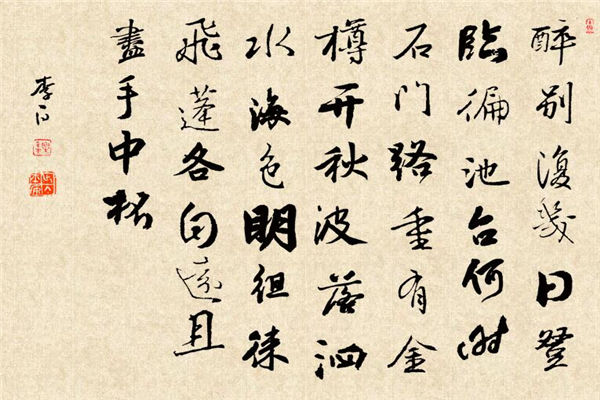 醉别復幾日登
臨徧池台何时
石门路重有金
樽开秋波落泗
水海色明徂徕
飛蓬各自遠且
盡手中杯
李白